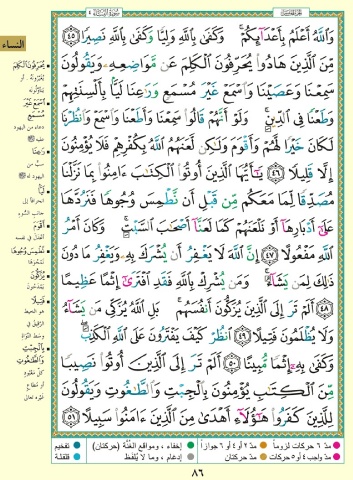 سُورَةُ النِّسَاءِ ٤
وَاللَّهُ أَعْلَمُ بِأَعْدَائِكُمْ ۚ وَكَفَىٰ بِاللَّهِ وَلِيًّا وَكَفَىٰ بِاللَّهِ نَصِيرًا ٤٥
مِّنَ الَّذِينَ هَادُوا يُحَرِّفُونَ الْكَلِمَ عَن مَّوَاضِعِهِ وَيَقُولُونَ
سَمِعْنَا وَعَصَيْنَا وَاسْمَعْ غَيْرَ مُسْمَعٍ وَرَاعِنَا لَيًّا بِأَلْسِنَتِهِمْ
وَطَعْنًا فِي الدِّينِ ۚ وَلَوْ أَنَّهُمْ قَالُوا سَمِعْنَا وَأَطَعْنَا وَاسْمَعْ وَانظُرْنَا
لَكَانَ خَيْرًا لَّهُمْ وَأَقْوَمَ وَلَٰكِن لَّعَنَهُمُ اللَّهُ بِكُفْرِهِمْ فَلَا يُؤْمِنُونَ
إِلَّا قَلِيلًا ٤٦ يَا أَيُّهَا الَّذِينَ أُوتُوا الْكِتَابَ آمِنُوا بِمَا نَزَّلْنَا
مُصَدِّقًا لِّمَا مَعَكُم مِّن قَبْلِ أَن نَّطْمِسَ وُجُوهًا فَنَرُدَّهَا
عَلَىٰ أَدْبَارِهَا أَوْ نَلْعَنَهُمْ كَمَا لَعَنَّا أَصْحَابَ السَّبْتِ ۚ وَكَانَ أَمْرُ
اللَّهِ مَفْعُولًا ٤٧ إِنَّ اللَّهَ لَا يَغْفِرُ أَن يُشْرَكَ بِهِ وَيَغْفِرُ مَا دُونَ
ذَٰلِكَ لِمَن يَشَاءُ ۚ وَمَن يُشْرِكْ بِاللَّهِ فَقَدِ افْتَرَىٰ إِثْمًا عَظِيمًا
٤٨ أَلَمْ تَرَ إِلَى الَّذِينَ يُزَكُّونَ أَنفُسَهُم ۚ بَلِ اللَّهُ يُزَكِّي مَن يَشَاءُ
وَلَا يُظْلَمُونَ فَتِيلًا ٤٩ انظُرْ كَيْفَ يَفْتَرُونَ عَلَى اللَّهِ الْكَذِبَ ۖ
وَكَفَىٰ بِهِ إِثْمًا مُّبِينًا ٥٠ أَلَمْ تَرَ إِلَى الَّذِينَ أُوتُوا نَصِيبًا
مِّنَ الْكِتَابِ يُؤْمِنُونَ بِالْجِبْتِ وَالطَّاغُوتِ وَيَقُولُونَ
لِلَّذِينَ كَفَرُوا هَٰؤُلَاءِ أَهْدَىٰ مِنَ الَّذِينَ آمَنُوا سَبِيلًا ٥١
النساء
يُحَرِّفُونَ الْكَلِمَ
يُغَيِّرُونَهُ
اسْمَعْ غَيْرَ
مُسْمَعٍ
رَاعِنَا
لَيًّا
أَقْوَمَ
نَّطْمِسَ وُجُوهًا
يُزَكُّونَ
فَتِيلًا
بِالْجِبْتِ
وَالطَّاغُوتِ
مدّ ٦ حركات لزوماً
مدّ ٢ أو ٤ أو ٦ جوازاً
إخفاء، ومواقع الغُنَّة (حركتان)
تفخيم
مدّ واجب ٤ أو ٥ حركات
مدّ حركتان
إدغام، وما لا يُلفَظ
قلقلة
٨٦